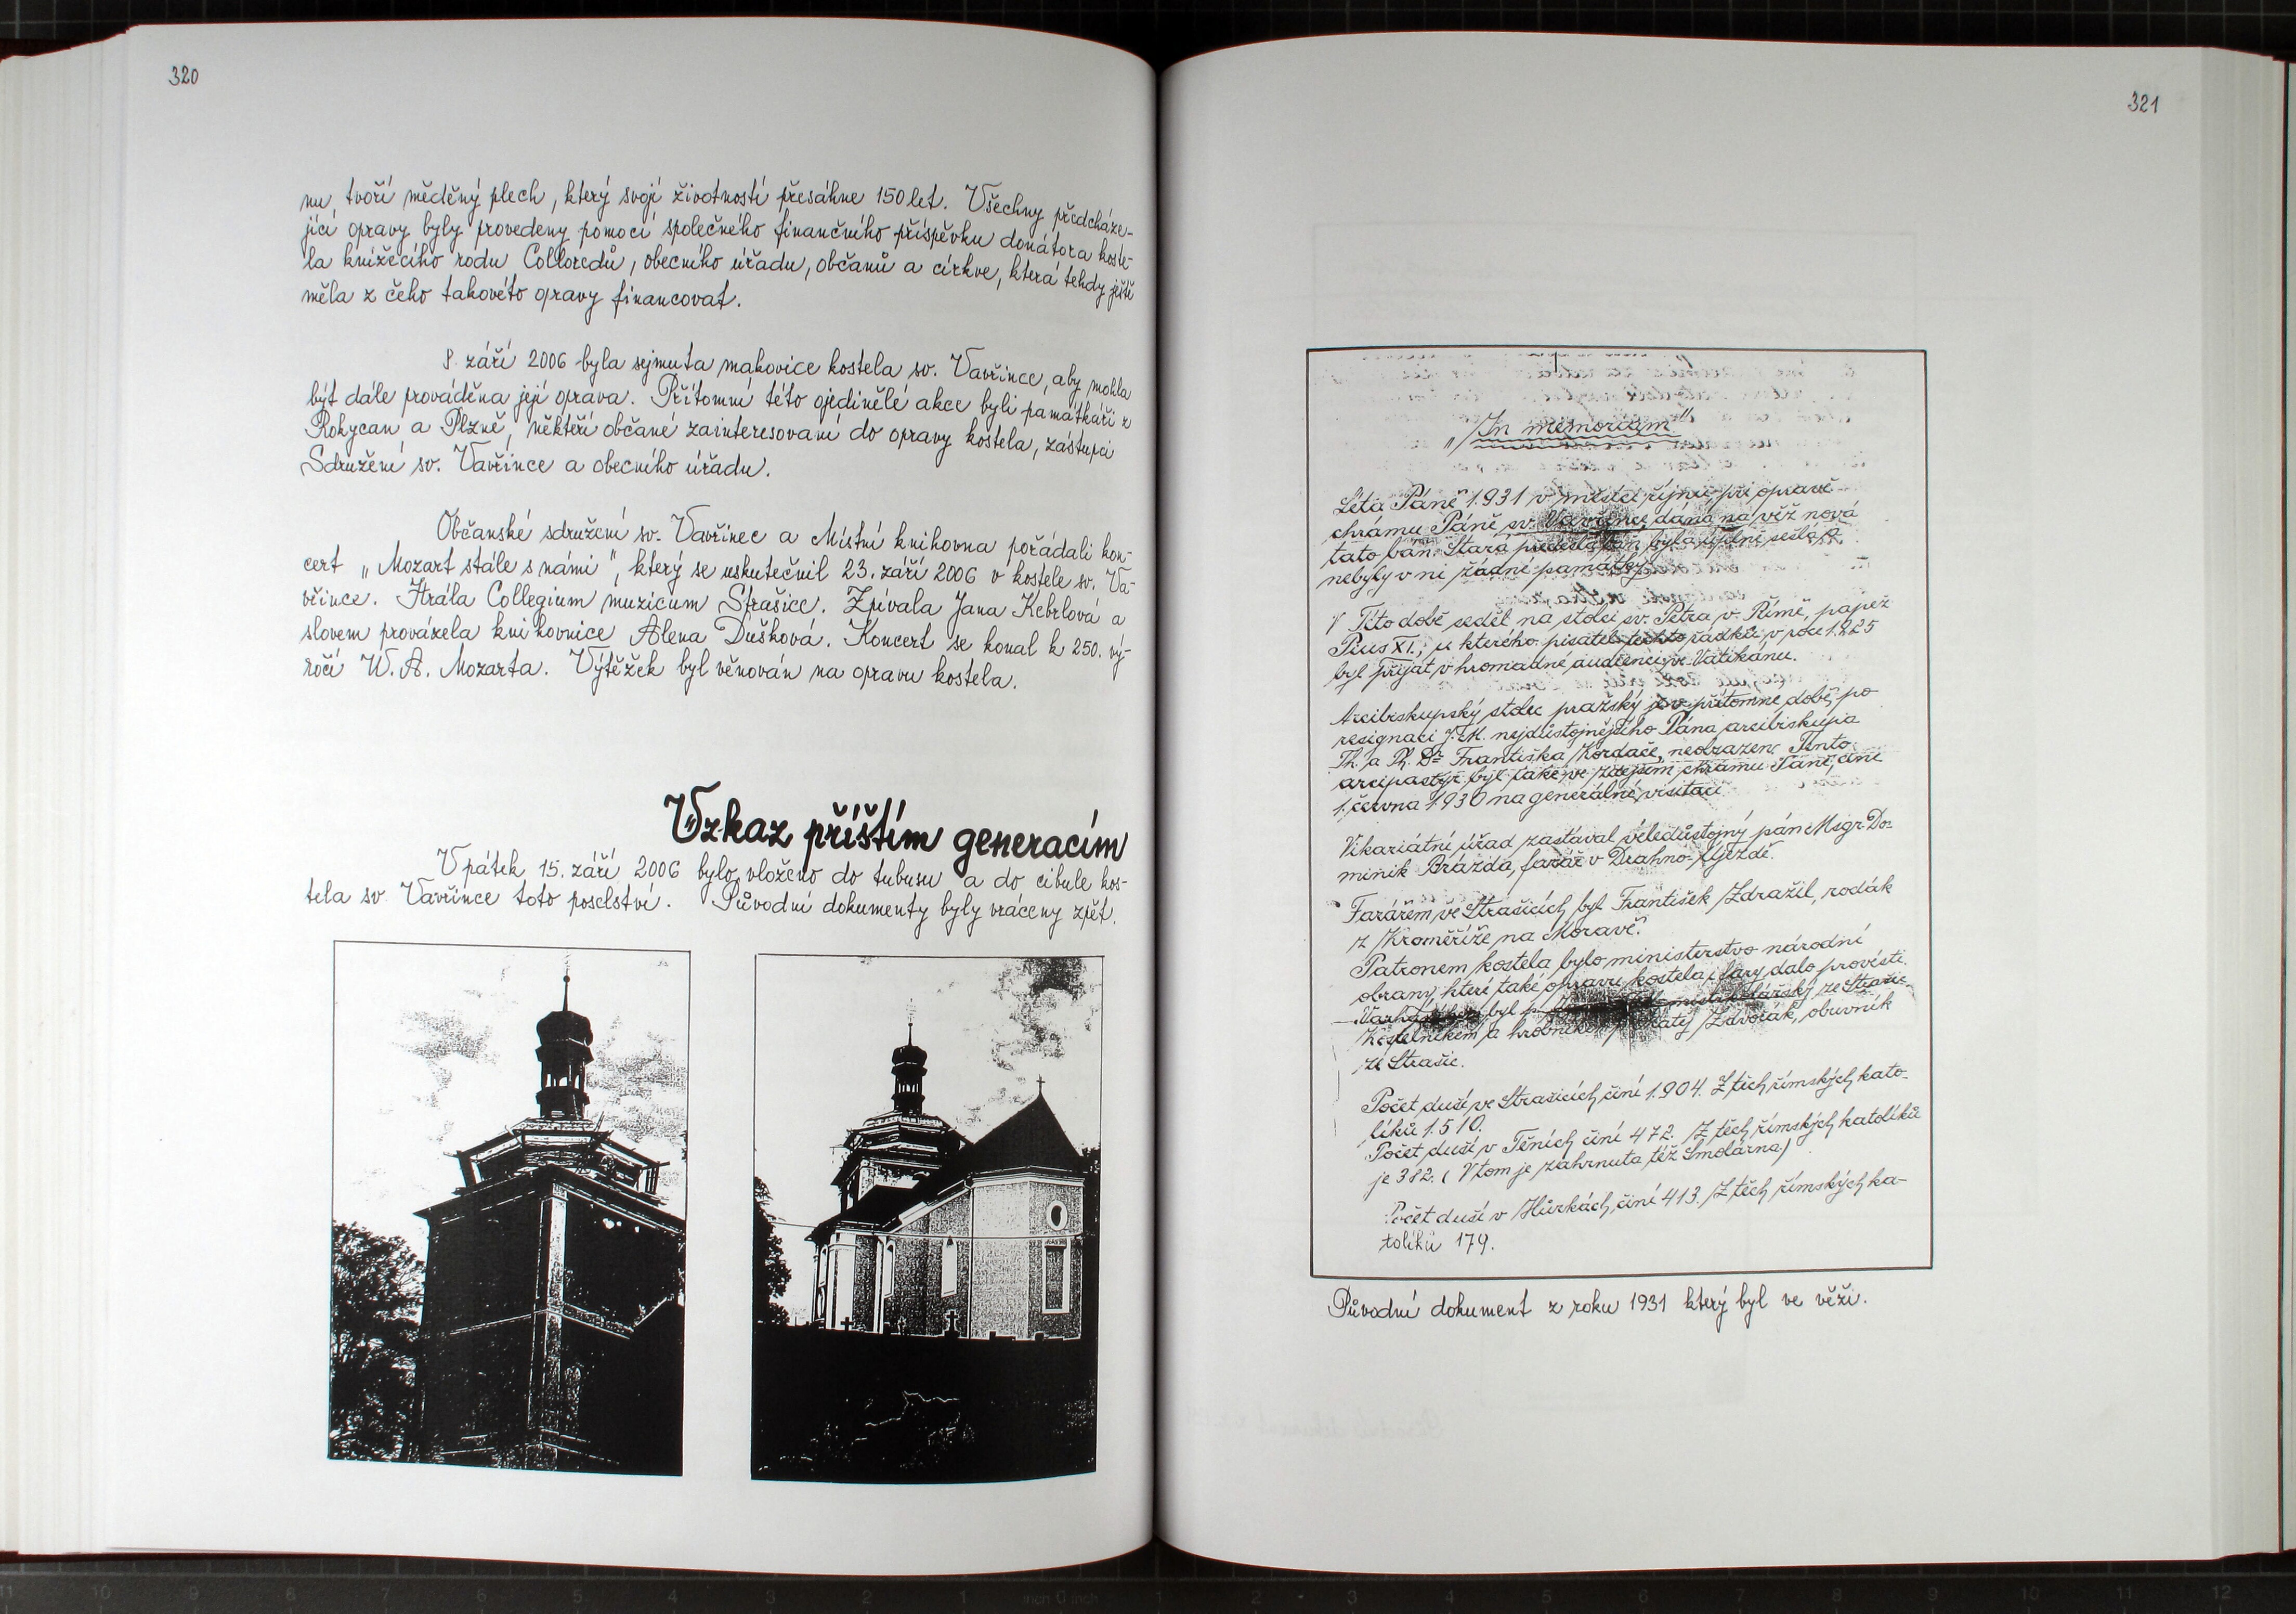 320
nu, tvoří měděný plech, který svojí životností přesáhne 150 let. Všechny předcháze-
jící opravy byly provedeny pomocí společného finančního příspěvku donátora koste-
la knížecího rodu Colloredů, obecního úřadu, občanů a církve, která tehdy ještě
měla z čeho takovéto opravy financovat.
8. září 2006 byla sejmuta makovice kostela sv. Vavřince, aby mohla
být dále prováděna její oprava. Přítomni této ojedinělé akce byli památkáři z
Rokycan a Plzně, někteří občané zainteresovaní do opravy kostela, zástupci
Sdružení sv. Vavřince a obecního úřadu.
Občanské sdružení sv. Vavřinec a Místní knihovna pořádali kon-
cert „Mozart stále s námi", který se uskutečnil 23. září 2006 v kostele sv. Va-
vřince. Hrála Collegium muzicum Strašice. Zpívala Jana Kebrlová a
slovem provázela knihovnice Alena Dušková. Koncert se konal k 250. vý-
ročí W. A. Mozarta. Výtěžek byl věnován na opravu kostela.
Vzkaz příštím generacím
V pátek 15. září 2006 bylo vloženo do tubusu a do cibule kos-
tela sv. Vavřince toto poselství. Původní dokumenty byly vráceny zpět.
321
„In memoriam"
Léta Páně 1931 v měsíci říjnu, při opravě
chrámu Páně sv. Vavřince, dána na věž nová
tato báň. Stará předešlá báň byla úplně sešlá, a
nebyly v ní žádné památky.
V Této době seděl na stolci sv. Petra v Římě, papež
Pius XI., u kterého pisatel těchto řádků, v roce 1925
byl přijat v hromadné audienci ve Vatikánu.
Arcibiskupský stolec pražský je v přítomné době, po
resignaci J. M. nejdůstojnějšího Pána arcibiskupa
Th. a Ph. Dr. Františka Kordače, neobsazen. Tento
arcipastýř byl také ve zdejším chrámu Páně, dne
1. června 1930 na generální visitaci
Vikariátní úřad zastával veledůstojný pán Msgr. Do-
minik Brázda, farář v Drahno-Újezdě.
Farářem ve Strašicích byl František Zdražil, rodák
z Kroměříže na Moravě.
Patronem kostela bylo ministerstvo národní
obrany, které také opravu kostela i fary dalo provésti.
byl mistr kolářský ze Strašic.
Kostelníkem a hrobníkem Matěj Zdvořák, obuvník
ze Strašic.
Počet duší ve Strašicích činí 1.904. Z těch římských kato-
líků 1.510.
Počet duší v Těních činí 472. Z těch římských katolíků
je 382. (V tom je zahrnuta též Smolárna)
Počet duší v Hůrkách, činí 413. Z těch římských ka-
tolíků 179.
Původní dokument z roku 1931 který byl ve věži.